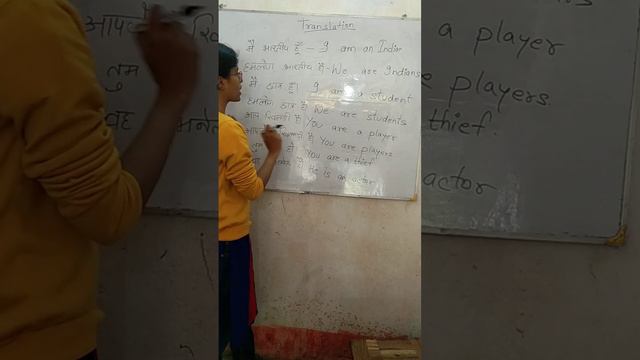 Translation
मैं भारतीय हूँ – I am an Indian
हमलोग भारतीय हैं – We are Indians
मैं छात्र हूँ। I am a student
हमलोग छात्र हैं We are students
आप खिलाड़ी हैं You are a player
You are players
You are a thief
He is an actor